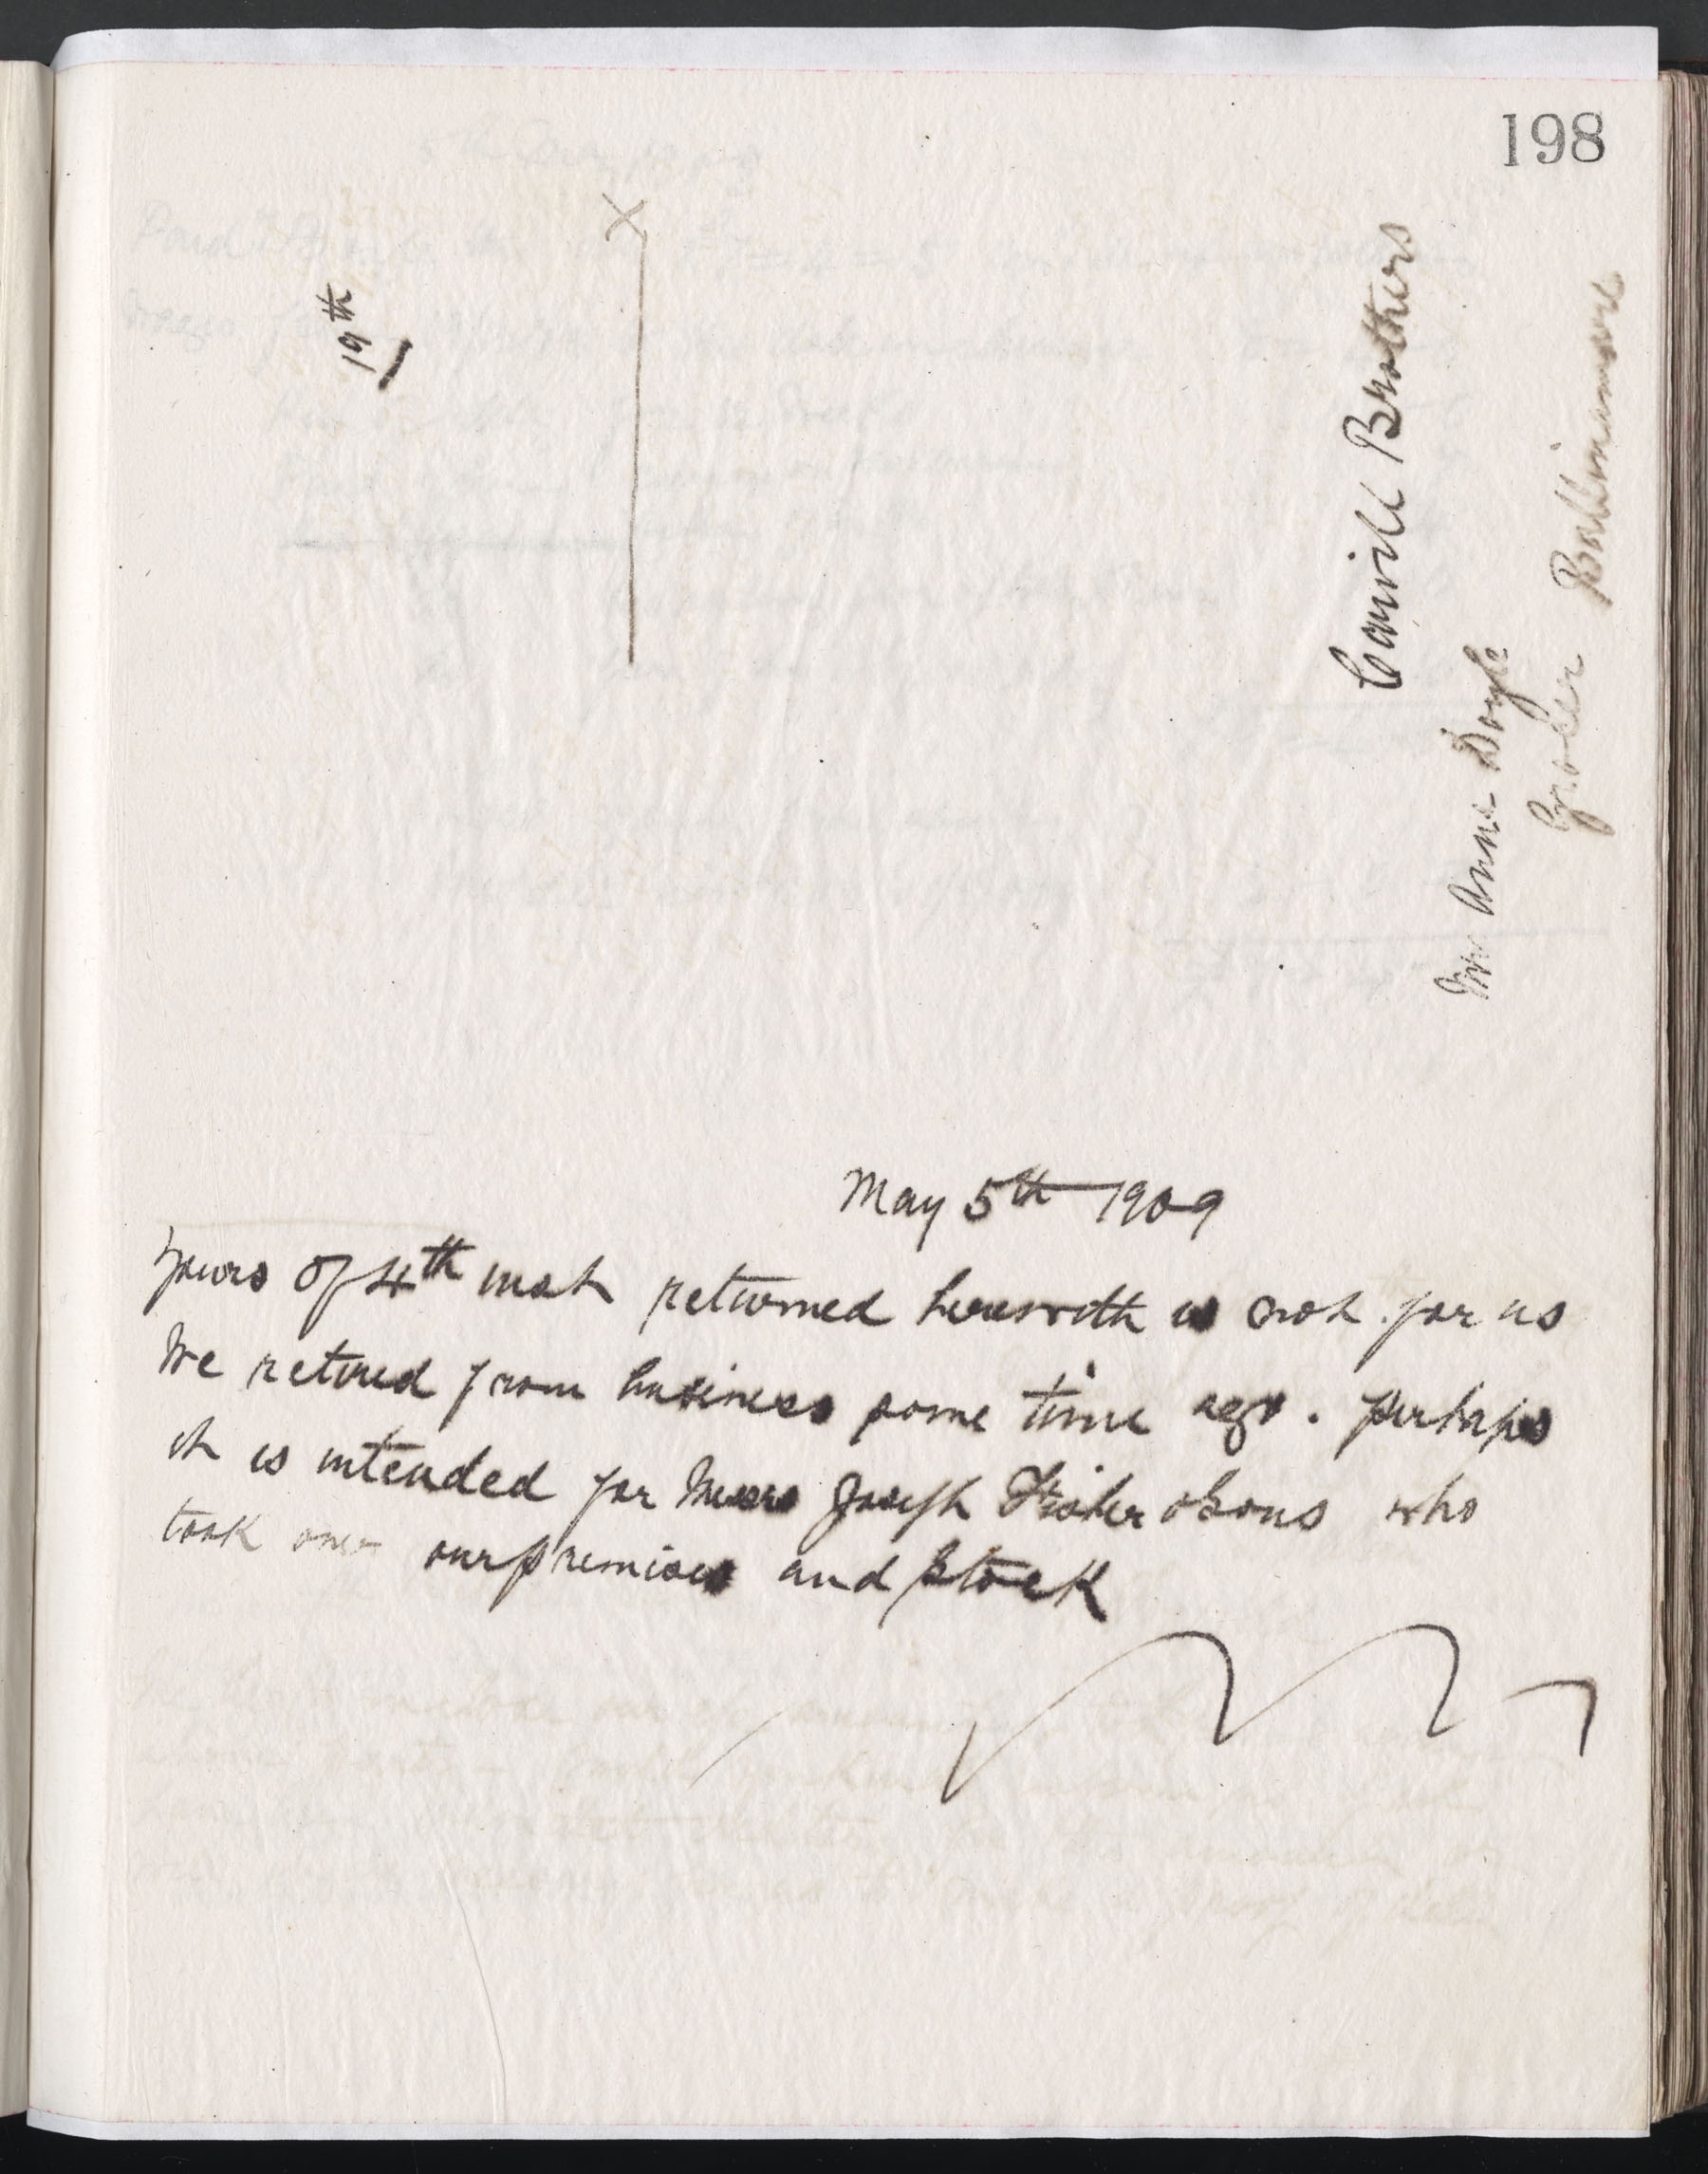 198
19th
Brothers
Mrs Anne Doyle
Grocer Ballinamore
May 5th 1909
Yours of 4th inst returned herewith is not for us
We retired from business some time ago. Perhaps
it is intended for Messrs Joseph Fisher & Sons who
took over our premises and stock